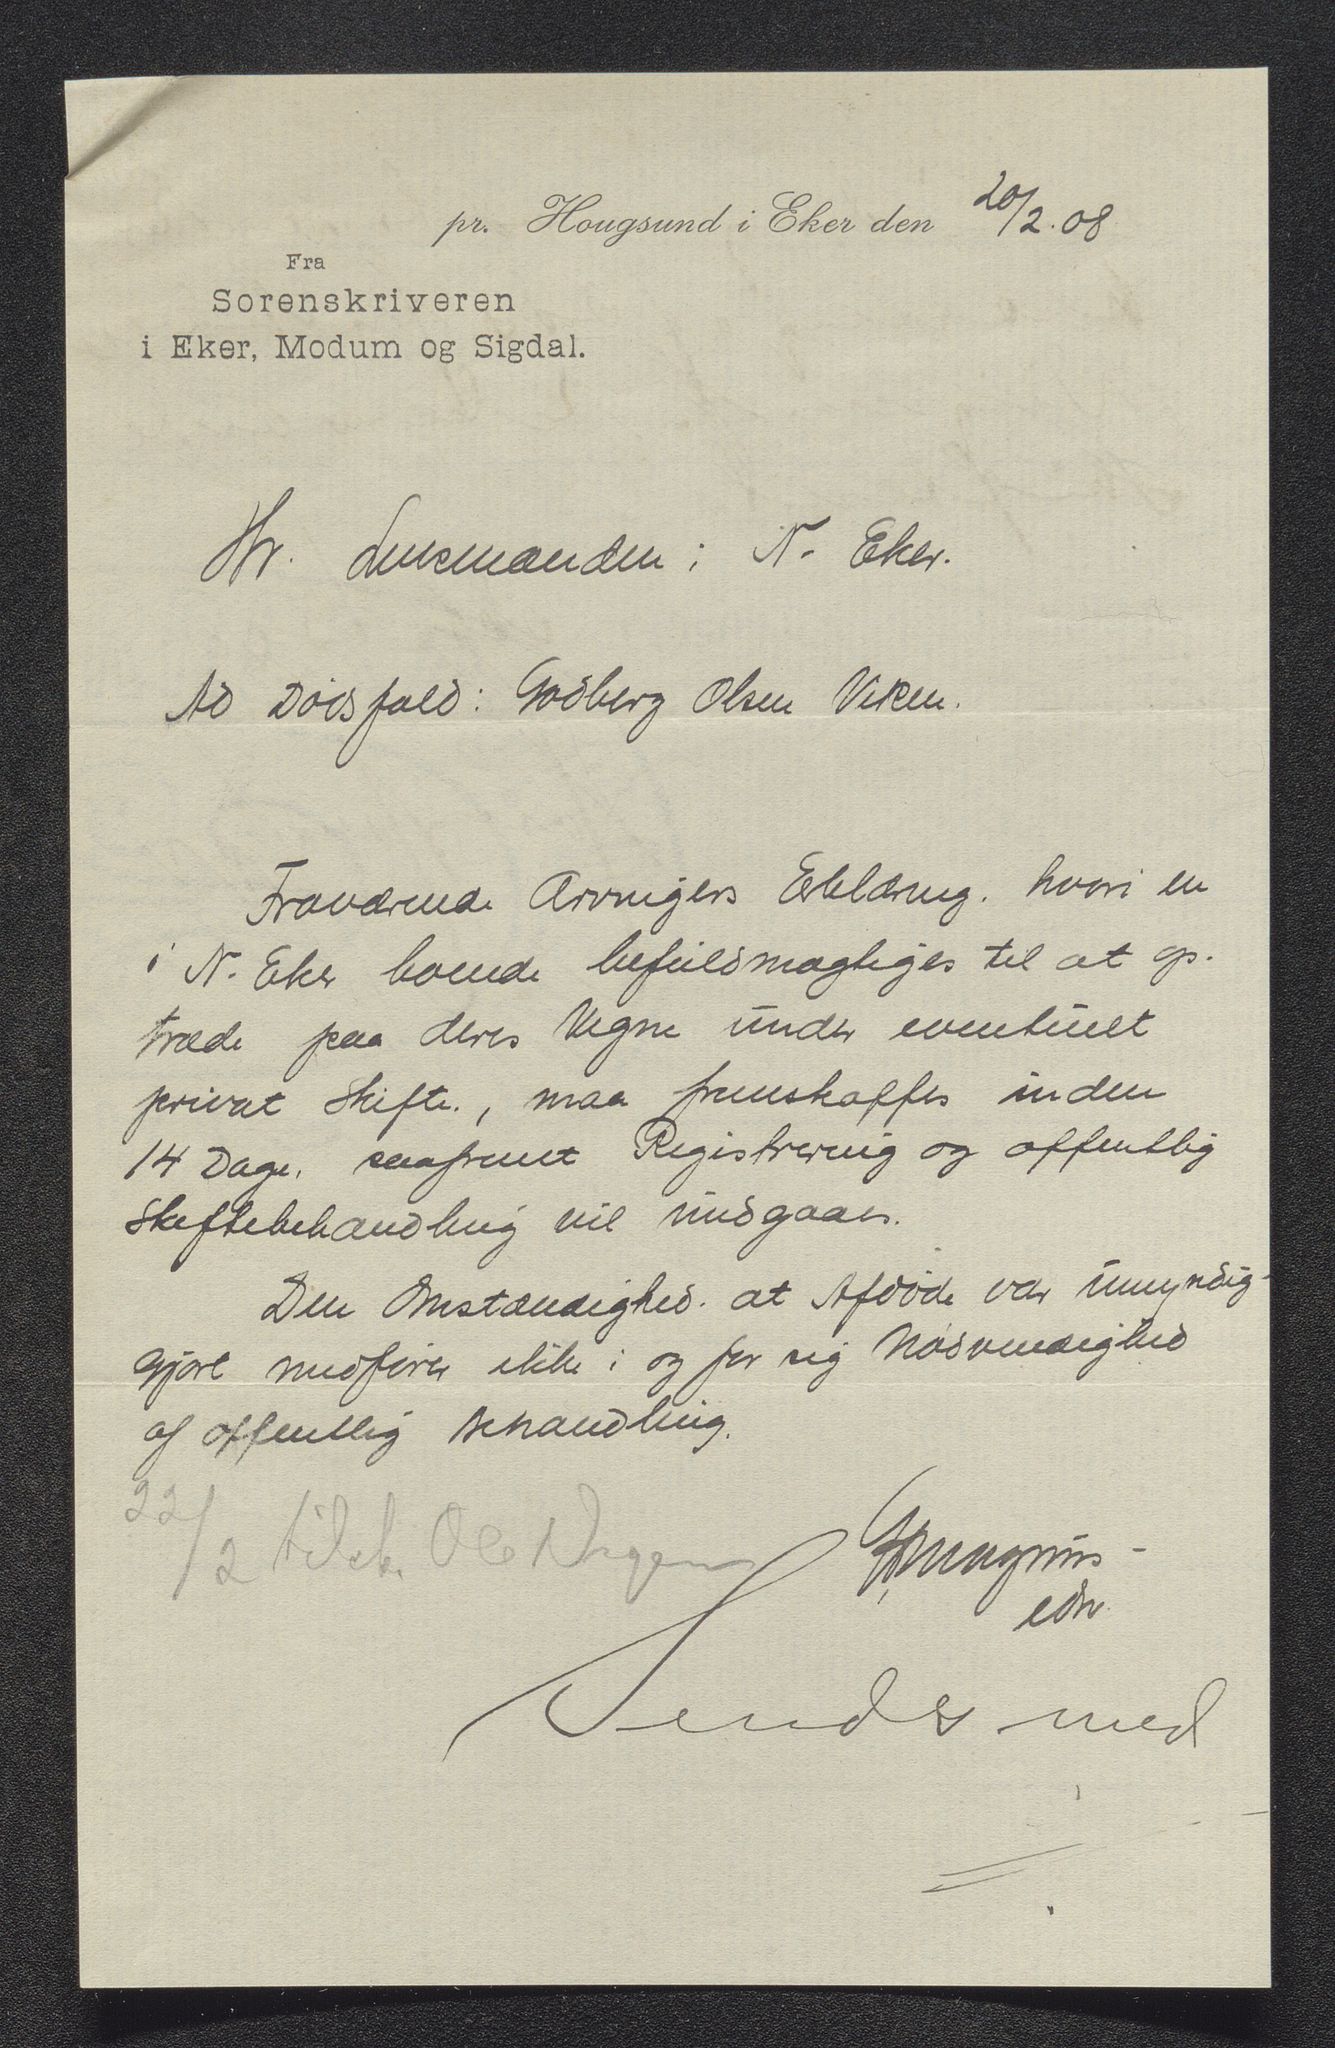 pr. Hougsund i Eker den 20/2.08
Fra
Sorenskriveren
i Eker, Modum og Sigdal.
Hr. Lensmanden i N. Eker.
Ad Dødsfald: Godberg Olsen Viken.
Fraværende Arvingers Erklæring, hvori en
i N. Eker boende befuldmægtiges til at op-
træde paa deres Vegne under eventuelt
privat Skifte, maa fremskaffes inden
14 Dage, saafremt Registrering og offentlig
Skiftebehandling vil undgaaes.
Den Omstændighed, at Afdøde var umyndig-
gjort medfører ikke i og for sig Nødvendighed
af offentlig Behandling.
22/2 tilsk. Ole
Sendes med